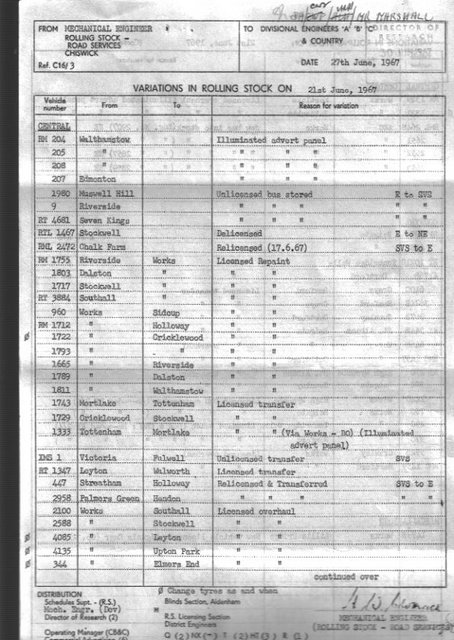 MR MARSHALL
FROM MECHANICAL ENGINEER
ROLLING STOCK –
ROAD SERVICES
CHISWICK
Ref. C16/3
TO DIVISIONAL ENGINEERS 'A' 'B' 'C'
& COUNTRY
DATE 27th June, 1967
VARIATIONS IN ROLLING STOCK ON 21st June, 1967
Vehicle number From To Reason for variation
CENTRAL
RM 204 Walthamstow Illuminated advert panel
205 " " " "
208 " " " "
207 Edmonton " " "
1980 Muswell Hill Unlicensed bus stored E to SVS
9 Riverside " " " " "
RT 4681 Seven Kings " " " " "
RTL 1467 Stockwell Delicensed E to NE
RML 2472 Chalk Farm Relicensed (17.6.67) SVS to E
RM 1755 Riverside Works Licensed Repaint
1803 Dalston " " "
1717 Stockwell " " "
RT 3884 Southall " " "
960 Works Sidcup " "
RM 1712 " Holloway " "
ø 1722 " Cricklewood " "
1793 " " " "
1665 " Riverside " "
1789 " Dalston " "
1811 " Walthamstow " "
1743 Mortlake Tottenham Licensed transfer
1729 Cricklewood Stockwell " "
1333 Tottenham Mortlake " " (Via Works - BO) (Illuminated
advert panel)
XMS 1 Victoria Fulwell Unlicensed transfer SVS
RT 1347 Leyton Walworth Licensed transfer
447 Streatham Holloway Relicensed & Transferred SVS to E
2958 Palmers Green Hendon " " " " "
2100 Works Southall Licensed overhaul
2588 " Stockwell " "
ø 4085 " Leyton " "
ø 4135 " Upton Park " "
ø 344 " Elmers End " "
continued over
ø Change tyres as and when
DISTRIBUTION
Schedules Supt. - (R.S.)
Mech. Engr. (Dev)
Director of Research (2)
Operating Manager (CB&C)
Blinds Section, Aldenham
R.S. Licensing Section
District Engineers
MECHANICAL ENGINEER
(ROLLING STOCK - ROAD SERVICES)